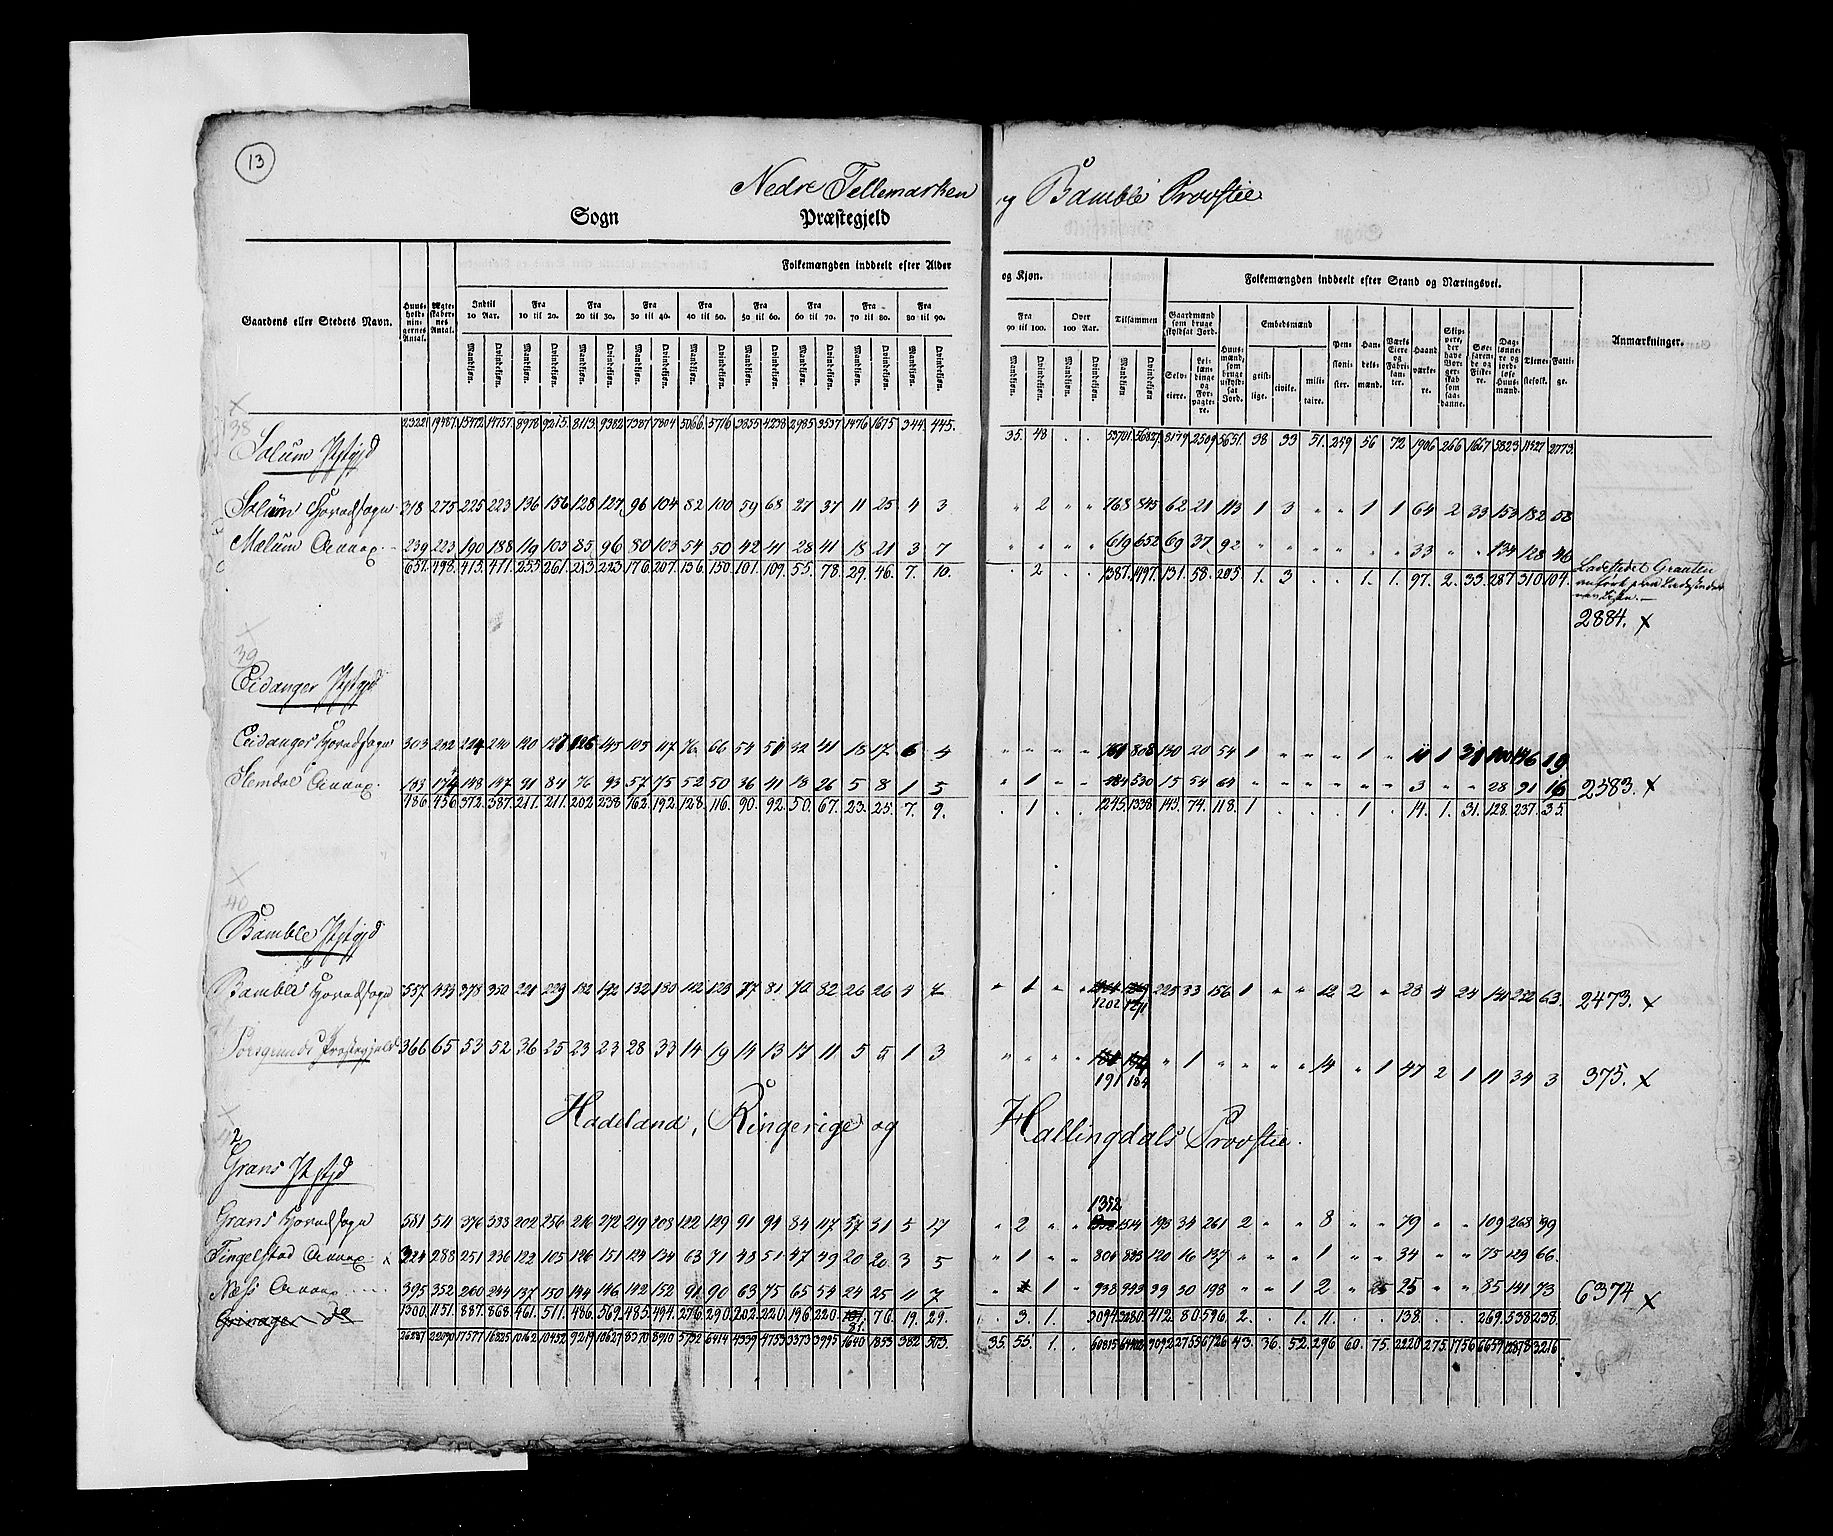 13
Nedre Tellemarken og Bamble Provstie
Sogn Præstegjeld
Gaardens eller Stedets Navn. Huus-hold-nin-gernes Antal. Ægte-skaber-nes Antal. Folkemængden inddeelt efter Alder og Kjøn. Tilsammen Folkemængden inddeelt efter Stand og Næringsvei. Anmærkninger.
Indtil 10 Aar. Fra 10 til 20. Fra 20 til 30. Fra 30 til 40. Fra 40 til 50. Fra 50 til 60. Fra 60 til 70. Fra 70 til 80. Fra 80 til 90. Fra 90 til 100. Over 100 Aar.
Gaardmænd som bruge skyldsat Jord. Huusmænd, som bruge uskyldsat Jord. Embedsmænd Pensionister. Handelsmænd. Værks Eiere og Fabrikanter. Haandværkere. Skippere, der have Borgerskab som saadanne. Søefarende og Fiskere. Daglønnere og jordløse Huusmænd. Tjenestefolk. Fattige.
Mandkjøn. Qvindekjøn. Selveiere. Leilændinge og Forpagtere. geistlige. civile. militaire.
38
23221 19487 15472 14757 8978 9275 8113 9382 7387 7804 5066 5716 3855 4238 2985 3537 1476 1675 344 445 35 48 . . 53701 56827 8179 2509 5651 38 33 51 259 56 72 1906 266 1667 5823 11527 2773
Solum Pstgjd
Solum Hovedsogn 378 275 225 223 136 156 128 127 96 104 82 100 59 68 27 37 11 25 4 3 " 2 " " 768 845 62 21 113 1 3 " " 1 1 64 2 33 153 182 58
Mælum Annex 239 223 190 188 119 105 85 96 80 103 54 50 42 41 28 41 18 21 3 7 " " " " 619 652 69 37 92 " " " " " " 33 " " 134 128 46
651 498 415 471 255 261 213 223 176 207 136 150 101 109 55 78 29 46 7 10 . 2 . . 1387 1497 131 58 205 1 3 . . 1 1 97 2 33 287 310 104
Ladestedet
2884. x
39
Eidanger Pstgjd
Eidanger Hovedsogn 303 282 224 240 120 127 126 145 105 117 76 66 54 51 32 41 18 17 6 4 " " " " 761 808 130 20 54 1 " " " 1 " 11 1 31 100 146 19
Slemdal Annex 183 174 148 147 91 84 76 93 57 75 52 50 36 41 18 26 5 8 1 5 " 1 " " 484 530 15 54 64 " " " " " " 3 " " 28 91 16 2583. x
486 456 372 387 211 211 202 238 162 192 128 116 90 92 50 67 23 25 7 9 . 1 . . 1245 1338 145 74 118 1 . . . 1 . 14 1 31 128 237 35
40
Bamble Pstgjd
Bamble Hovedsogn 557 433 378 350 221 229 182 192 132 180 112 123 77 81 70 82 26 26 4 7 " 1 " 1202 1271 225 33 156 1 " " 12 2 " 23 4 24 141 222 63 2473. x
Porsgrunds Præstegjeld 366 65 53 52 36 25 23 23 28 33 14 19 14 13 17 11 5 5 1 3 " " " " 191 184 " 1 " " " " 14 " 1 47 2 1 11 34 3 375. x
Hadeland, Ringerige og Hallingdals Provstie.
Grans Pstgjd
Grans Hovedsogn 581 511 376 388 202 256 216 272 219 208 122 129 91 94 84 117 37 31 5 17 " 2 " " 1352 1514 193 34 261 2 " " 8 " " 79 " " 109 268 99
Tingelstad Annex 324 288 251 236 122 105 126 151 124 134 63 71 48 51 47 49 20 20 3 5 " 1 " " 804 823 120 16 137 " " " 1 " " 34 " " 75 129 66
Næs Annex 395 352 260 244 137 150 144 146 142 152 91 90 63 75 65 54 24 25 11 7 1 " 938 943 99 30 198 " " 1 2 " 25 " " 85 141 73 6374 x
1300 1151 887 868 461 511 486 569 485 494 276 290 202 220 196 220 81 76 19 29 . 3 1 . 3094 3280 412 80 596 2 . 1 11 . . 138 . . 269 538 238
26287 22090 17577 16825 10162 10432 9219 10627 8370 8910 5732 6414 4339 4753 3373 3995 1640 1853 382 503 35 55 1 . 60815 64400 9092 2755 6726 43 36 52 296 60 75 2220 275 1756 6659 12878 3216